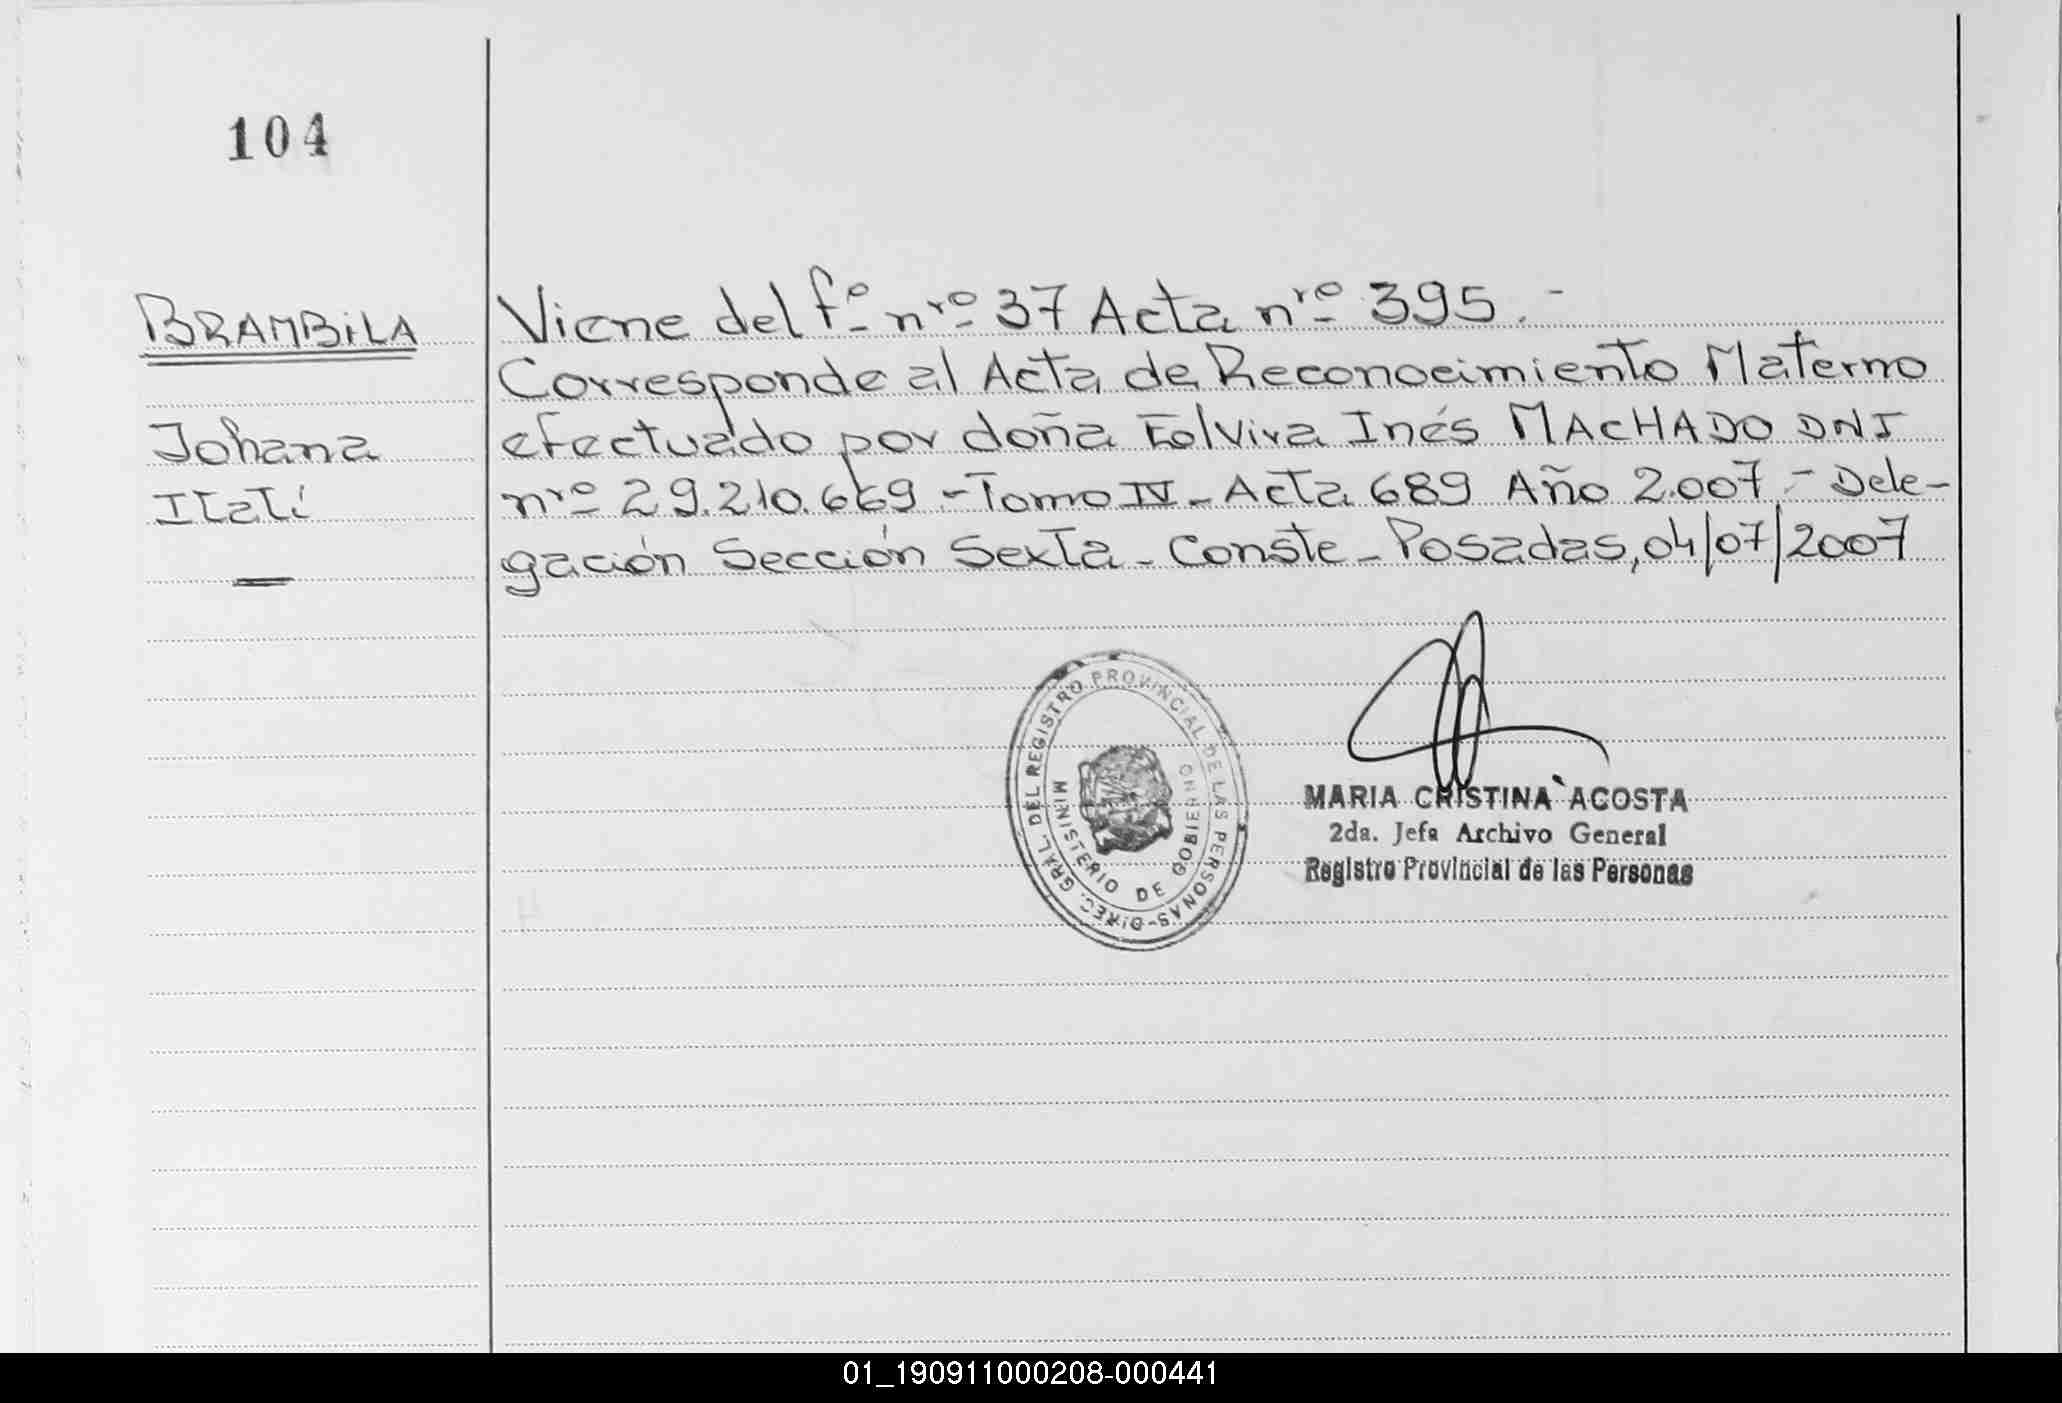 104
BRAMBILA
Johana
Itatí
Viene del fº nrº 37 Acta nrº 395.-
Corresponde al Acta de Reconocimiento Materno
efectuado por doña Eolvira Inés MACHADO DNI
nrº 29.210.669 - Tomo IV - Acta 689 Año 2.007.- Dele-
gación Sección Sexta - Conste - Posadas, 04/07/2007
DIREC. GRAL. DEL REGISTRO PROVINCIAL DE LAS PERSONAS-
MINISTERIO DE GOBIERNO
MARIA CRISTINA ACOSTA
2da. Jefa Archivo General
Registro Provincial de las Personas
01_190911000208-000441